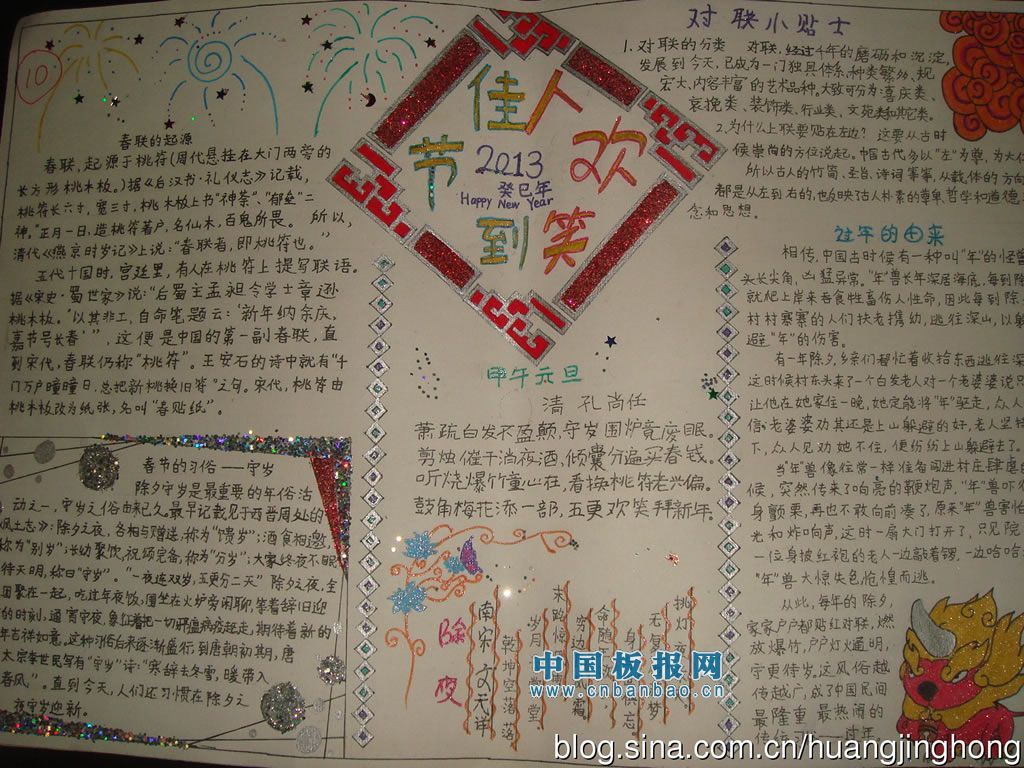 10
春联的起源
春联,起源于桃符(周代悬挂在大门两旁的
长方形桃木板。)据《后汉书·礼仪志》记载,
桃符长六寸,宽三寸,桃木板上书"神荼"、"郁垒"二
神。"正月一日,造桃符著户,名仙木,百鬼所畏。所以,
清代《燕京时岁记》上说:"春联者,即桃符也。"
五代十国时,宫廷里,有人在桃符上提写联语。
据《宋史·蜀世家》说:"后蜀主孟昶令学士章逊
桃木板。'以其非工,自命笔题云:'新年纳余庆,
嘉节号长春'",这便是中国的第一副春联,直
到宋代,春联仍称"桃符"。王安石的诗中就有"千
门万户曈曈日,总把新桃换旧符"之句。宋代,桃符由
桃木板改为纸张,名叫"春贴纸"。
春节的习俗——守岁
除夕守岁是最重要的年俗活
动之一,守岁之俗由来已久。最早记载见于西晋周处的
《风土志》:除夕之夜,各相与赠送,称为"馈岁";酒食相邀,
称为"别岁";长幼聚饮,祝颂完备,称为"分岁";大家终夜不眠,
待天明,称曰"守岁"。"一夜连双岁,五更分二天"除夕之夜,全
团聚在一起,吃过年夜饭,围坐在火炉旁闲聊,等着辞旧迎
的时刻,通宵守夜,象征着把一切邪瘟病疫赶走,期待着新的
年吉祥如意。这种习俗后来逐渐盛行,到唐朝初期,唐
太宗李世民写有"守岁"诗:"寒辞去冬雪,暖带入
春风"。直到今天,人们还习惯在除夕之
夜守岁迎新。
佳人
节欢
2013
癸巳年
Happy New Year
到笑
甲午元旦
清 孔尚任
萧疏白发不盈颠,守岁围炉竟废眠。
剪烛催干消夜酒,倾囊分遍买春钱。
听烧爆竹童心在,看换桃符老兴偏。
鼓角梅花添一部,五更欢笑拜新年。
除夜
南宋 文天祥
乾坤空落落
岁月
堂
末路惊
穷边
霜
命随
身
俱忘
无复
梦
挑灯夜
对联小贴士
1.对联的分类 对联,经过千年的磨砺和沉淀,
发展到今天,已成为一门独具体系,种类繁多、规
宏大、内容丰富的艺术品种,大致可分为:喜庆类、
哀挽类、装饰类、行业类、文苑类和其它类。
2.为什么上联要贴在右边? 这要从古时
候崇尚的方位说起。中国古代多以"左"为尊,为大位
所以古人的竹简、圣旨、诗词等等,从载体的方向
都是从左到右的,也反映了古人朴素的尊卑,哲学和道德
念和思想。
过年的由来
相传,中国古时候有一种叫"年"的怪兽
头长尖角,凶猛异常。"年"兽长年深居海底,每到除
就爬上岸来吞食牲畜伤人性命,因此每到除
村村寨寨的人们扶老携幼,逃往深山,以躲
避"年"的伤害。
有一年除夕,乡亲们都忙着收拾东西逃往深
这时候村东头来了一个白发老人对一个老婆婆说只
让他在她家住一晚,她定能将"年"驱走,众人
信,老婆婆劝其还是上山躲避的好,老人坚持
下,众人见劝她不住,便纷纷上山躲避去了。
当年兽像往常一样准备闯进村庄肆虐的
候,突然传来了响亮的鞭炮声,"年"兽吓得
身颤栗,再也不敢向前凑了,原来"年"兽害怕
光和炸响声,这时一扇大门打开了,只见院
一位身披红袍的老人一边敲着锣,一边哈哈大
"年"兽大惊失色,怆惶而逃。
从此,每年的除夕,
家家户户都贴红对联,燃
放爆竹,户户灯火通明,
守更待岁。这风俗越
传越广,成了中国民间
最隆重最热闹的
传统
过年
中国板报网
www.cnbanbao.cn
blog.sina.com.cn/huangjinghong